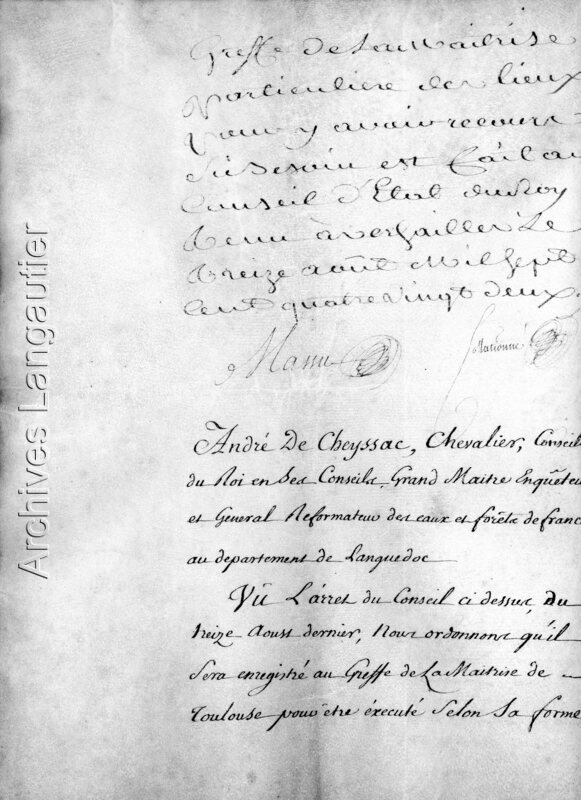 Greffe de La maitrise
particuliere des lieux
pour y avoir recours
Si Besoin est Fait au
Conseil d'Etat du Roy
tenu à versailles Le
treize aoust Mil Sept
Cent quatre vingt deux.
Collationné
André De Cheyssac, Chevalier, Conseil
du Roi en Ses Conseils, Grand Maitre Enquêteu
et General Reformateur des eaux et forêts de franc
au departement de Languedoc
Vû L'arret du Conseil ci dessus, du
treize Aoust dernier, Nous ordonnons qu'il
Sera enregistré au Greffe de La Maitrise de
Toulouse pour être éxecuté Selon Sa forme
Archives Langautier